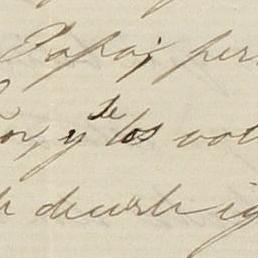 Papá; per
or, y de los vot
decirle ig